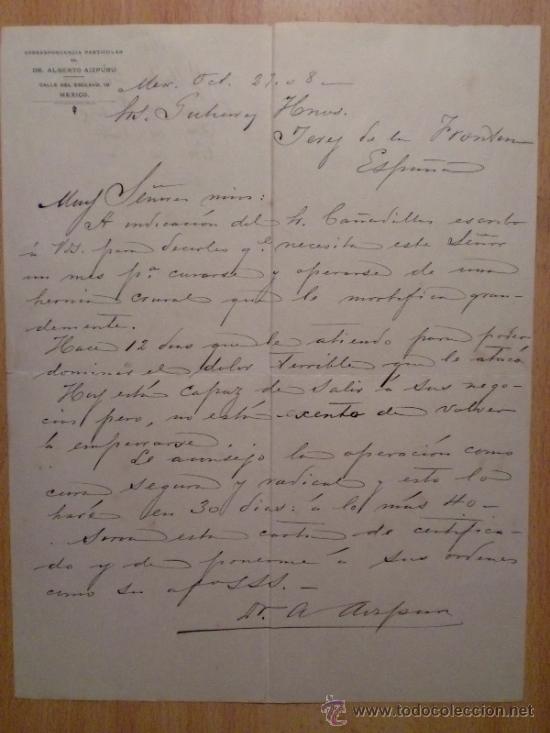 CORRESPONDENCIA PARTICULAR
DEL
DR. ALBERTO AIZPÚRU
CALLE DEL ESCLAVO, 10
MEXICO.
Mex. Oct. 29. 08
Sr. Hnos.
Jerez de la Frontera
España
Muy Señores mios:
A indicación del Sr. Cañadillas escribo
á Vds. para decirles qe. necesita este Señor
un mes pa. curarse y operarse de una
hernia crural que le mortifica gran-
demente.
Hace 12 dias que le atiendo para poder
dominar el dolor terrible que le atacó
Hoy está capaz de salir á sus nego-
cios pero, no está exento de volver
á empeorarse. . .
Le aconsejo la operación como
cura segura y radical y esto lo
hará en 30 dias: á lo más 40-
Sirva esta carta de certifica-
do y de ponerme á sus ordenes
como su afo. SSS.-
Dr. A Aizpuru
todocoleccion
www.todocoleccion.net